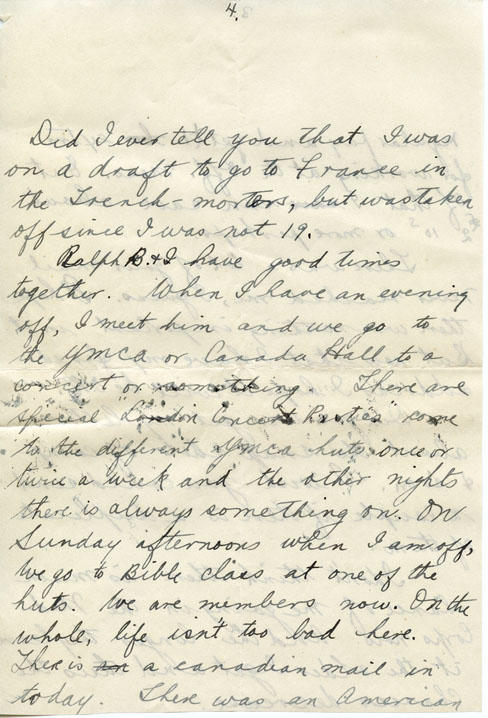 4.
Did I ever tell you that I was
on a draft to go to France in
the Trench-morters, but was taken
off since I was not 19.
Ralph B. & I have good times
together. When I have an evening
off, I meet him and we go to
the YMCA or Canada Hall to a
concert or something. There are
special "London Concert Parties" come
to the different YMCA huts once or
twice a week and the other nights
there is always something on. On
Sunday afternoons when I am off,
we go to Bible class at one of the
huts. We are members now. On the
whole, life isn't too bad here.
There is an a canadian mail in
today. There was an American